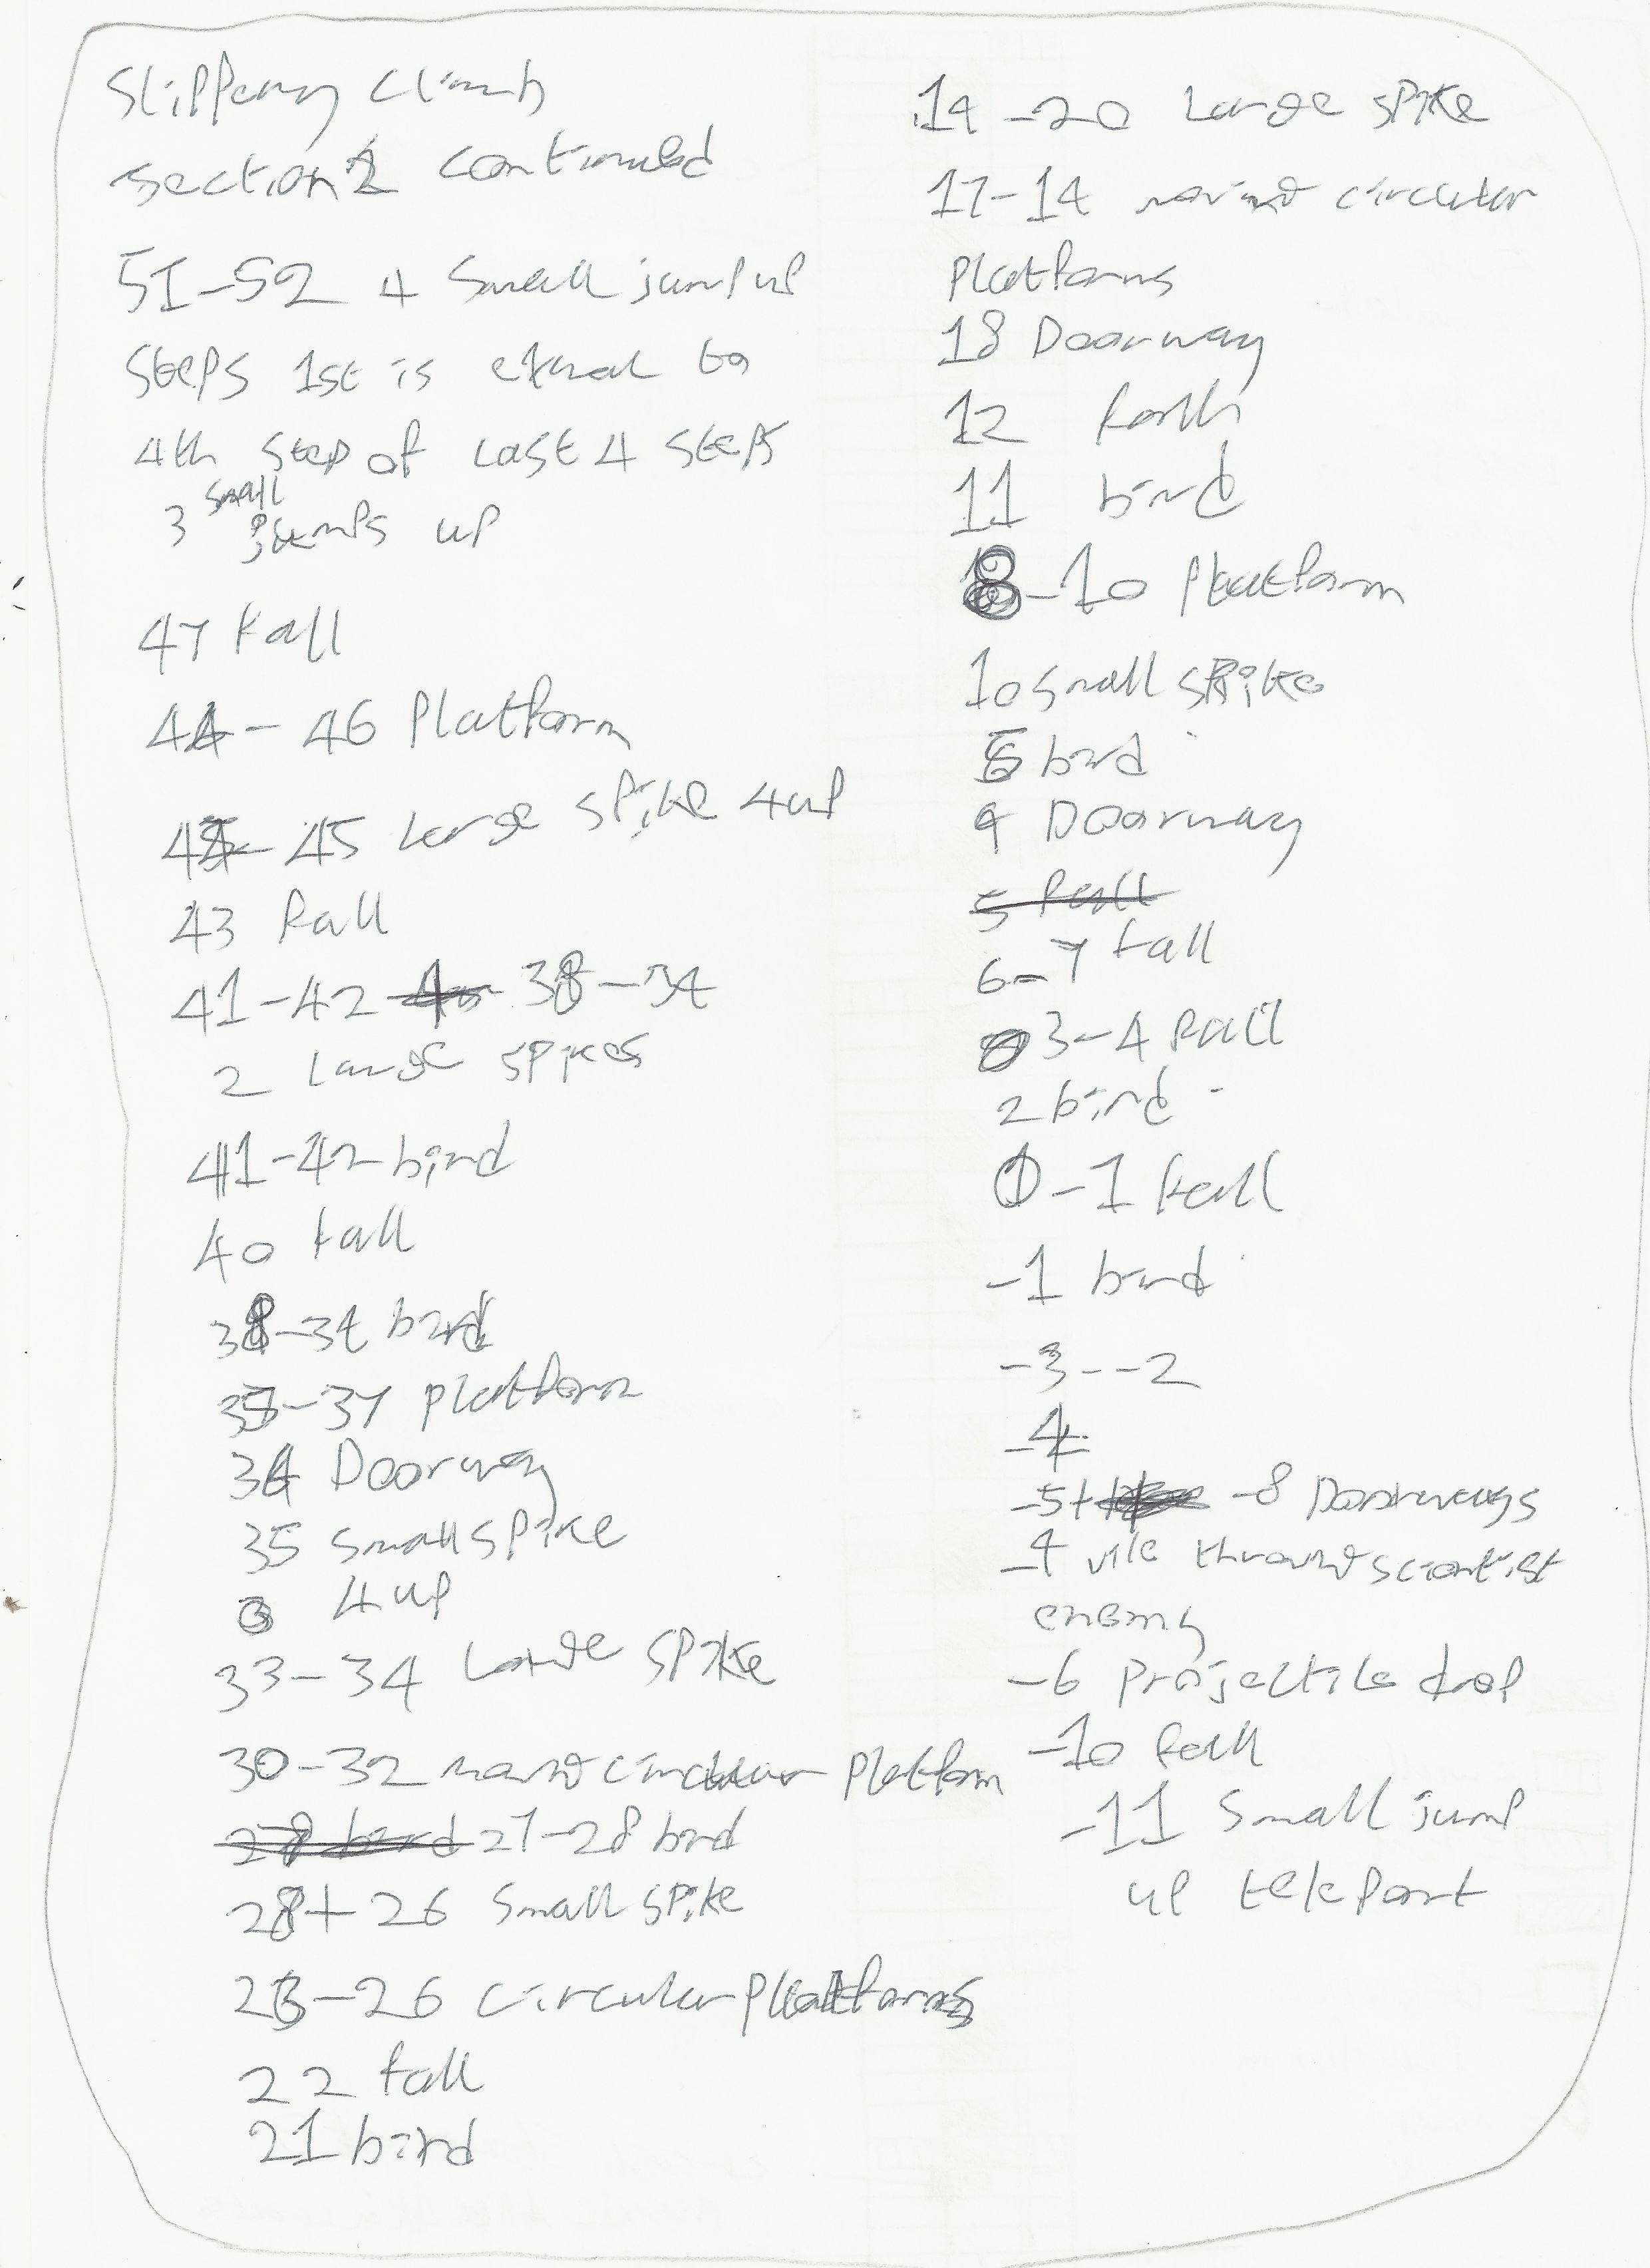 Slippery climb
section 2 continued
51-52 4 small jump up
steps 1st is equal to
4th step of last 4 steps
3 small jumps up
47 fall
44-46 Platform
45 large spike 4 up
43 fall
41-42 38-39
2 large spikes
41-42 bird
40 fall
38-39 bird
37 platform
36 Doorway
35 small spike
4 up
33-34 large spike
30-32 moving circular platform
27-28 bird
28+26 small spike
23-26 circular platforms
22 fall
21 bird
19-20 large spike
17-19 moving circular
platforms
18 Doorway
12 fall
11 bird
8-10 Platform
10 small spike
bird
9 Doorway
5 fall
6-7 fall
3-4 fall
2 bird
0-1 fall
-1 bird
-3--2
-4
-5+ -8 Doorways
-9 vile throwing scientist
enemy
-6 projectile drop
-10 fall
-11 small jump
up teleport